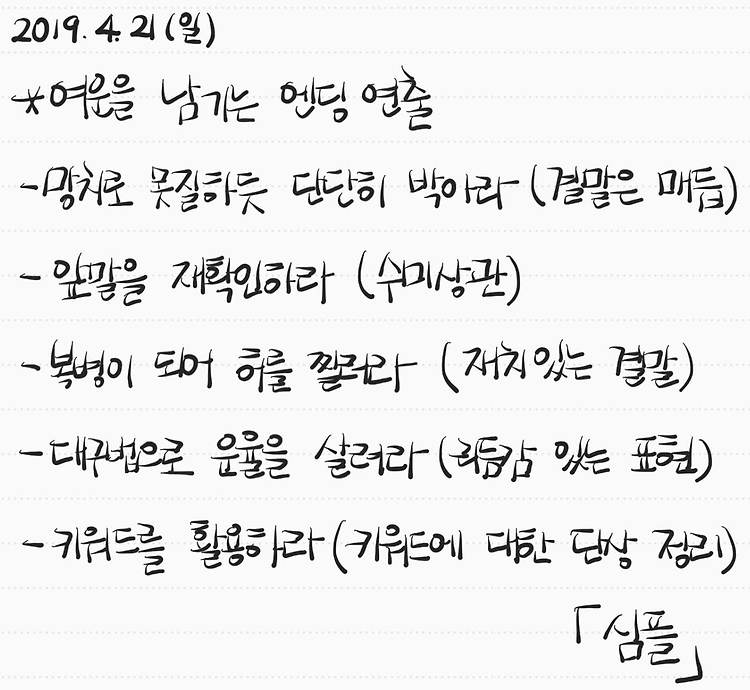 2019. 4. 21 (일)
*여운을 남기는 엔딩 연출
-망치로 못질하듯 단단히 박아라 (결말은 매듭)
-앞말을 재확인하라 (수미상관)
-복병이 되어 허를 찔러라 (재치있는 결말)
-대구법으로 운율을 살려라 (리듬감 있는 표현)
-키워드를 활용하라 (키워드에 대한 단상 정리)
「심플」